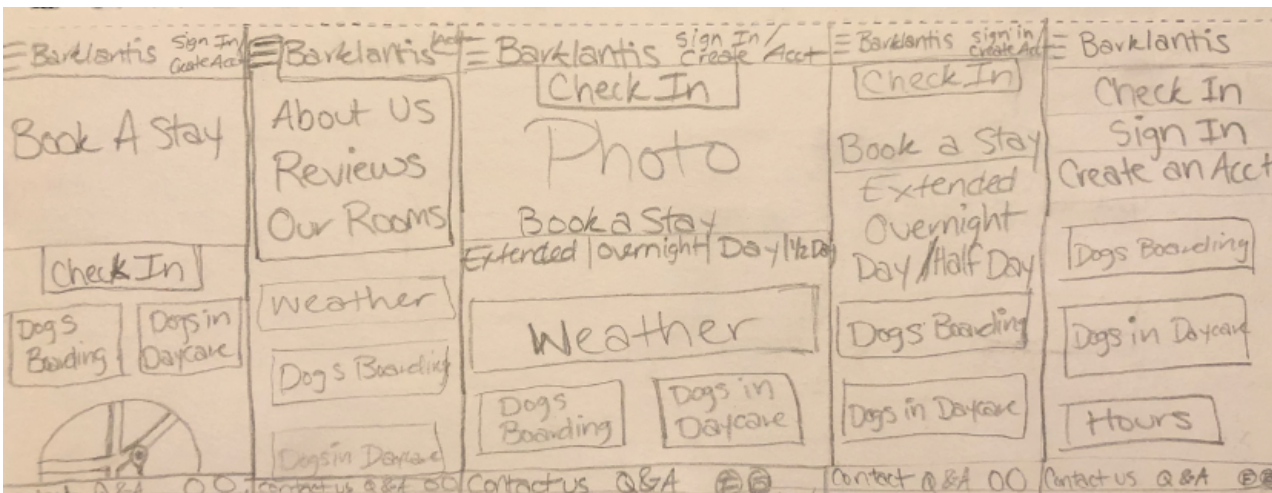 Barklantis Sign In/
Create Acct
Book A Stay
Check In
Dogs
Boarding
Dogs in
Daycare
Q&A
Barklantis Acct
About Us
Reviews
Our Rooms
Weather
Dogs Boarding
Dogs in Daycare
Contact us Q&A
Barklantis Sign In/
Create Acct
Check In
Photo
Book a Stay
Extended | Overnight | Day | 1/2 Day
Weather
Dogs
Boarding
Dogs in
Daycare
Contact us Q&A
Barklantis Sign in/
Create Acct
Check In
Book a Stay
Extended
Overnight
Day/Half Day
Dogs Boarding
Dogs in Daycare
Contact Q&A
Barklantis
Check In
Sign In
Create an Acct
Dogs Boarding
Dogs in Daycare
Hours
Contact us Q&A